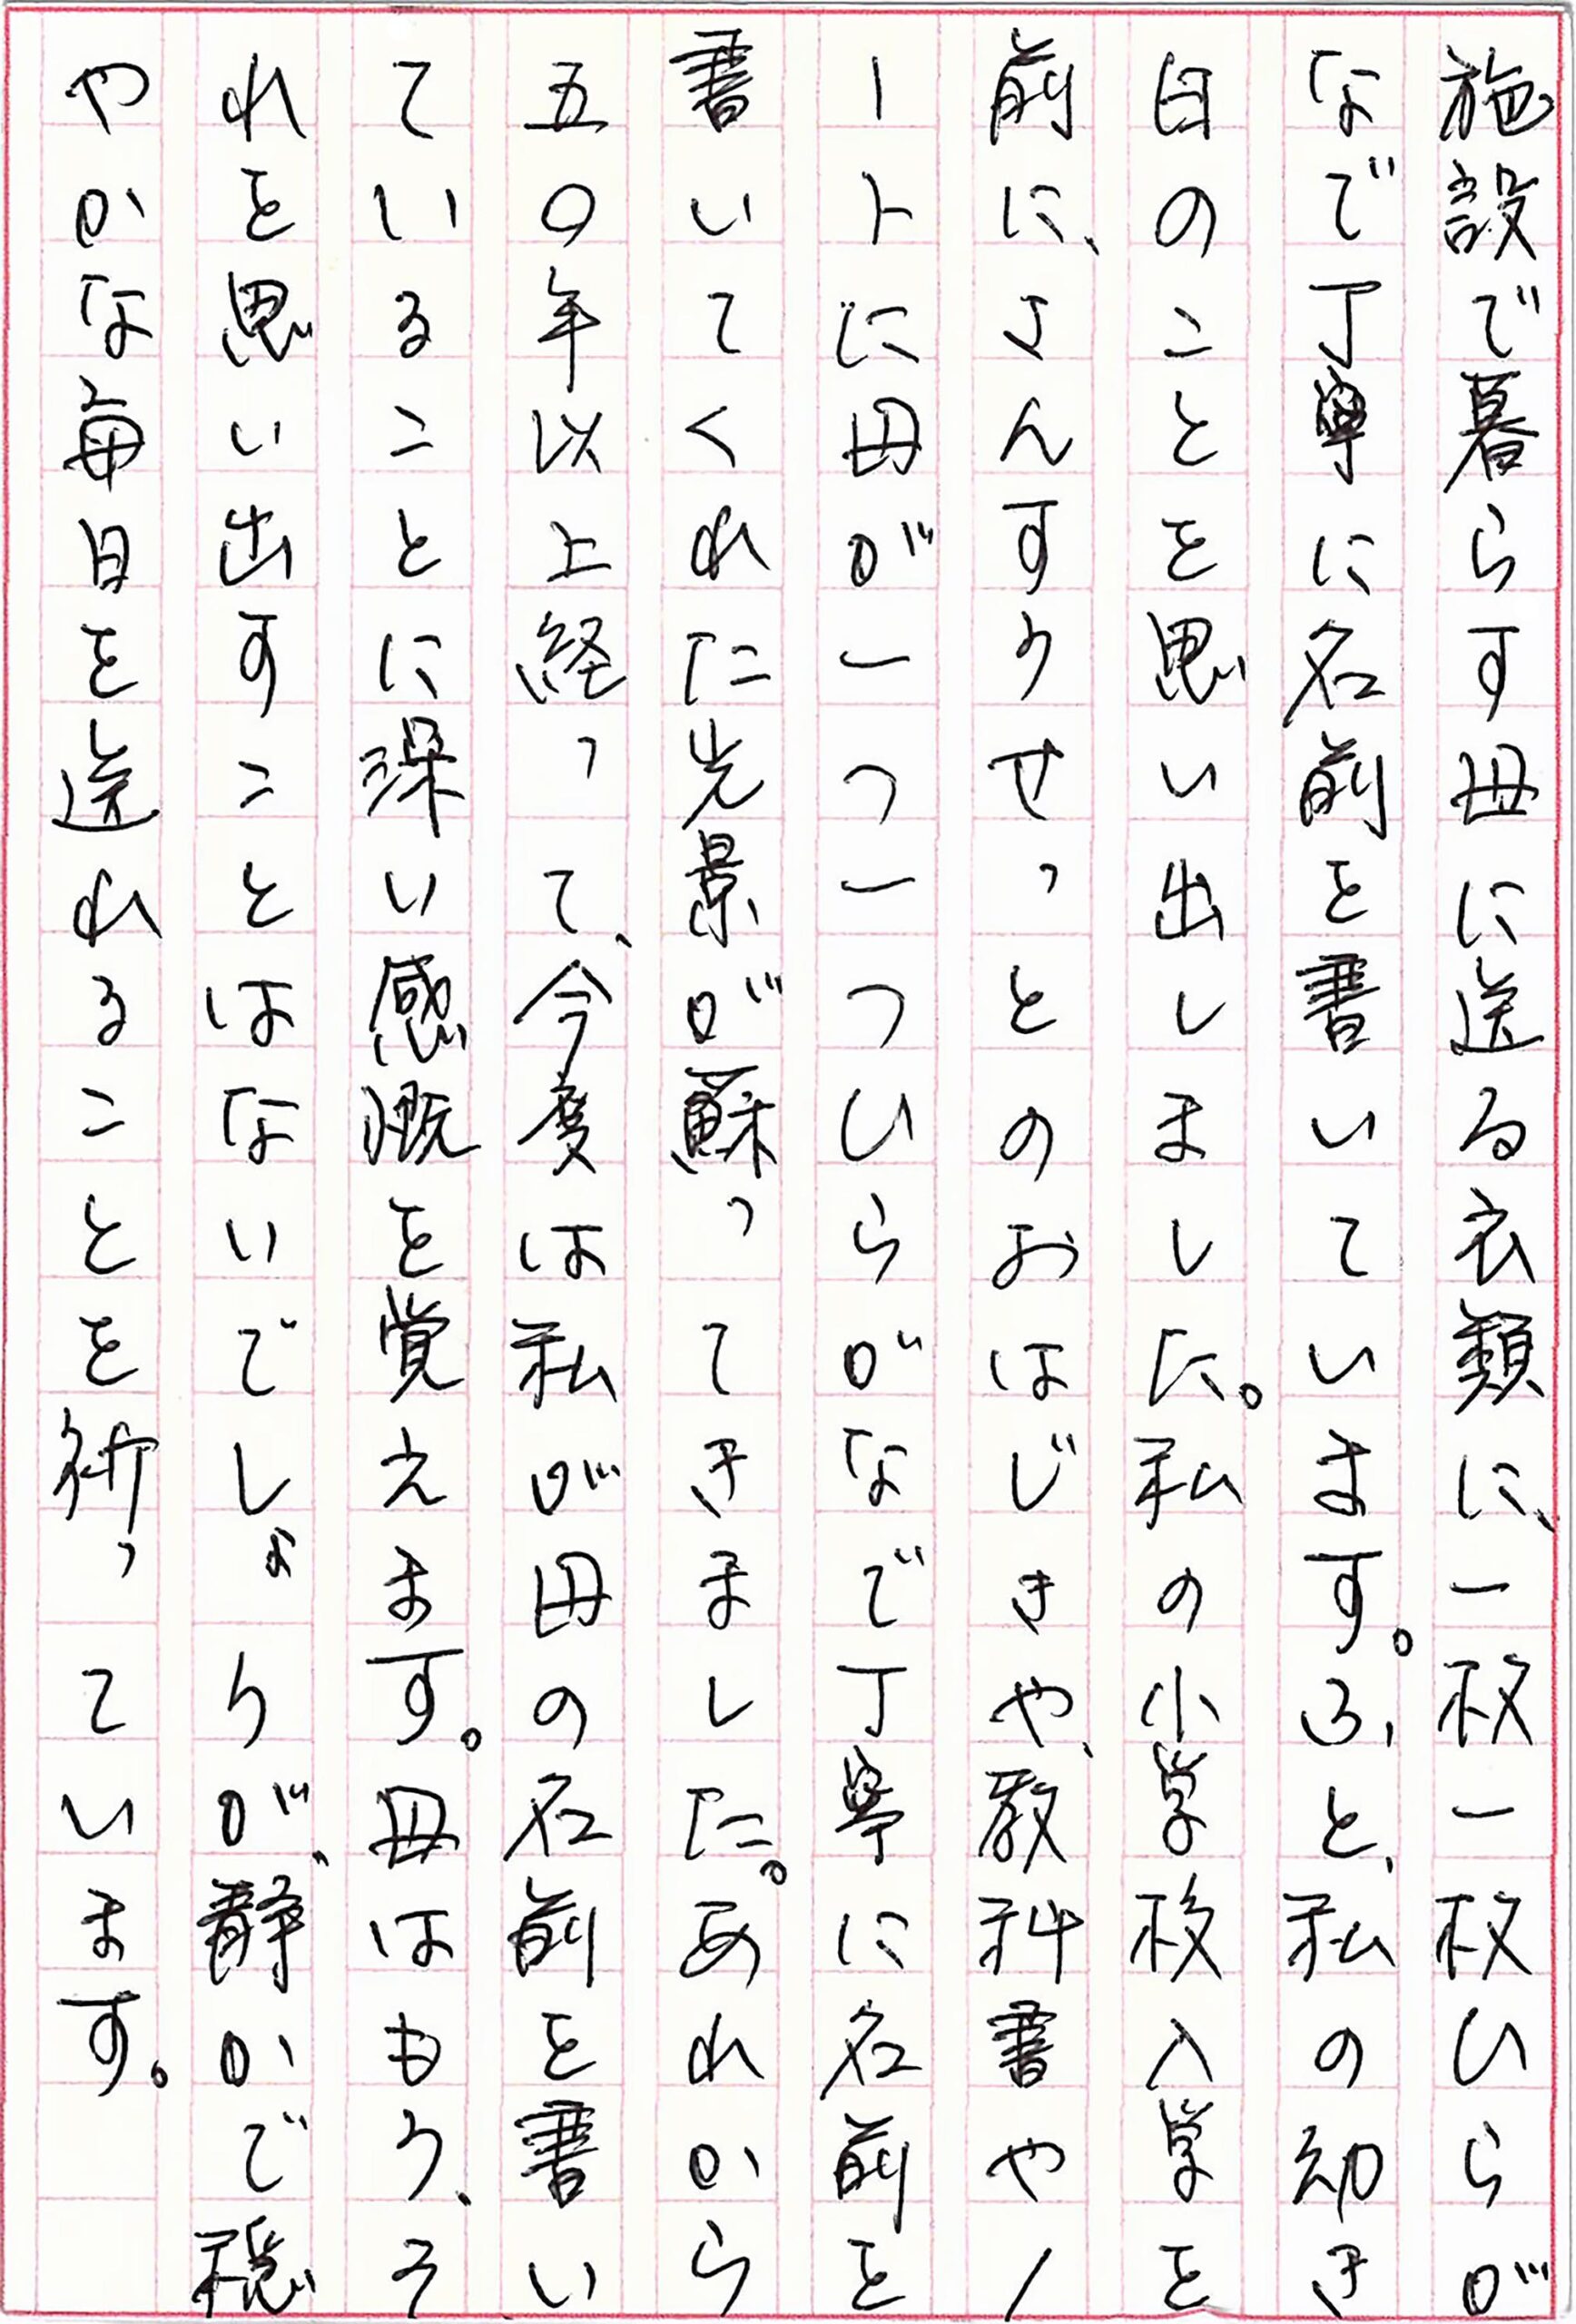 施設で暮らす母に送る衣類に、一枚一枚ひらが
なで丁寧に名前を書いています。ふと、私の幼き
日のことを思い出しました。私の小学校入学を
前に、さんすうせっとのおはじきや、教科書やノ
ートに母が一つ一つひらがなで丁寧に名前を
書いてくれた光景が蘇ってきました。あれから
五〇年以上経って、今度は私が母の名前を書い
ていることに深い感慨を覚えます。母はもう、そ
れを思い出すことはないでしょうが、静かで穏
やかな毎日を送れることを祈っています。